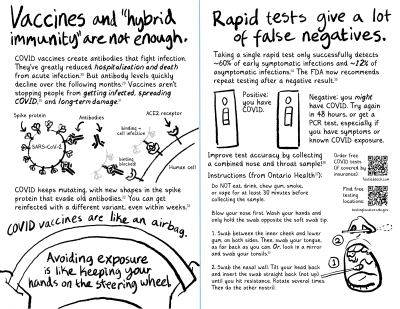 Vaccines and "hybrid
immunity" are not enough.
COVID vaccines create antibodies that fight infection.
They've greatly reduced hospitalization and death
from acute infection. But antibody levels quickly
decline over the following months. Vaccines aren't
stopping people from getting infected, spreading
COVID, and long-term damage.
Spike protein
Antibodies
ACE2 receptor
binding =
cell infection
SARS-CoV-2
binding
blocked
Human cell
COVID keeps mutating, with new shapes in the spike
protein that evade old antibodies. You can get
reinfected with a different variant, even within weeks.
COVID vaccines are like an airbag.
Avoiding exposure
is like keeping your
hands on the steering wheel.
Rapid tests give a lot
of false negatives.
Taking a single rapid test only successfully detects
~60% of early symptomatic infections and ~12% of
asymptomatic infections. The FDA now recommends
repeat testing after a negative result.
Positive:
you have
COVID.
Negative: you might
have COVID. Try again
in 48 hours, or get a
PCR test, especially if
you have symptoms or
known COVID exposure.
Improve test accuracy by collecting
a combined nose and throat sample!
Instructions (from Ontario Health):
Do NOT eat, drink, chew gum, smoke,
or vape for at least 30 minutes before
collecting the sample.
Blow your nose first. Wash your hands and
only hold the swab opposite the soft swab tip.
1. Swab between the inner cheek and lower
gum, on both sides. Then, swab your tongue,
as far back as you can. Or, look in a mirror
and swab your tonsils.
2. Swab the nasal wall. Tilt your head back
and insert the swab straight back (not up)
until you hit resistance. Rotate several times.
Then do the other nostril.
Order free
COVID tests
(if covered):
Find free
testing
locations:
2
1